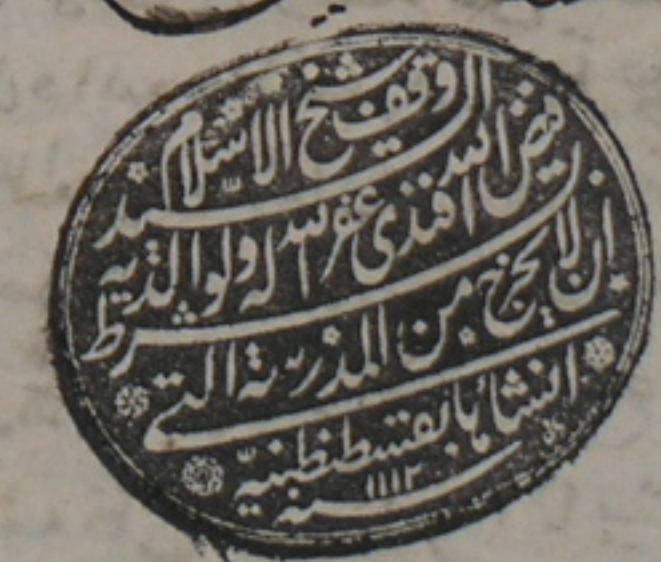 وقف شيخ الاسلام السيد
فيض الله افندى غفر الله له ولوالديه بشرط
ان لا يخرج من المدرسة التى
انشأها بقسطنطينيّة
سنه ١١١٢